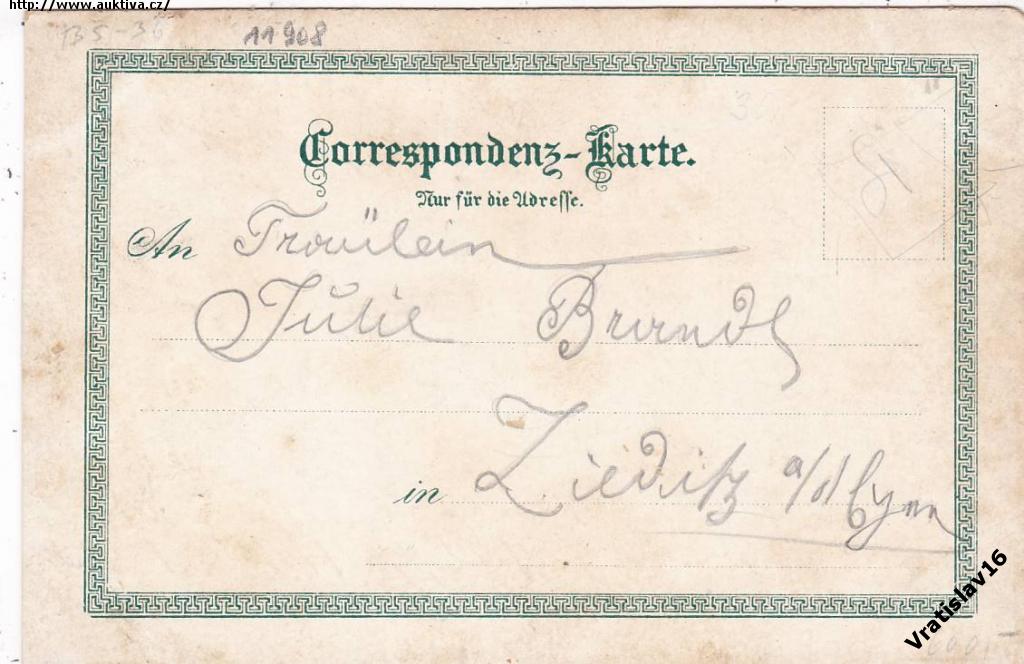 http://www.auktiva.cz/
11908
Correspondenz-Karte.
Nur für die Adresse.
An Fräulein
Julie Brandl
in Zieditz a/d Eger
Vratislav16